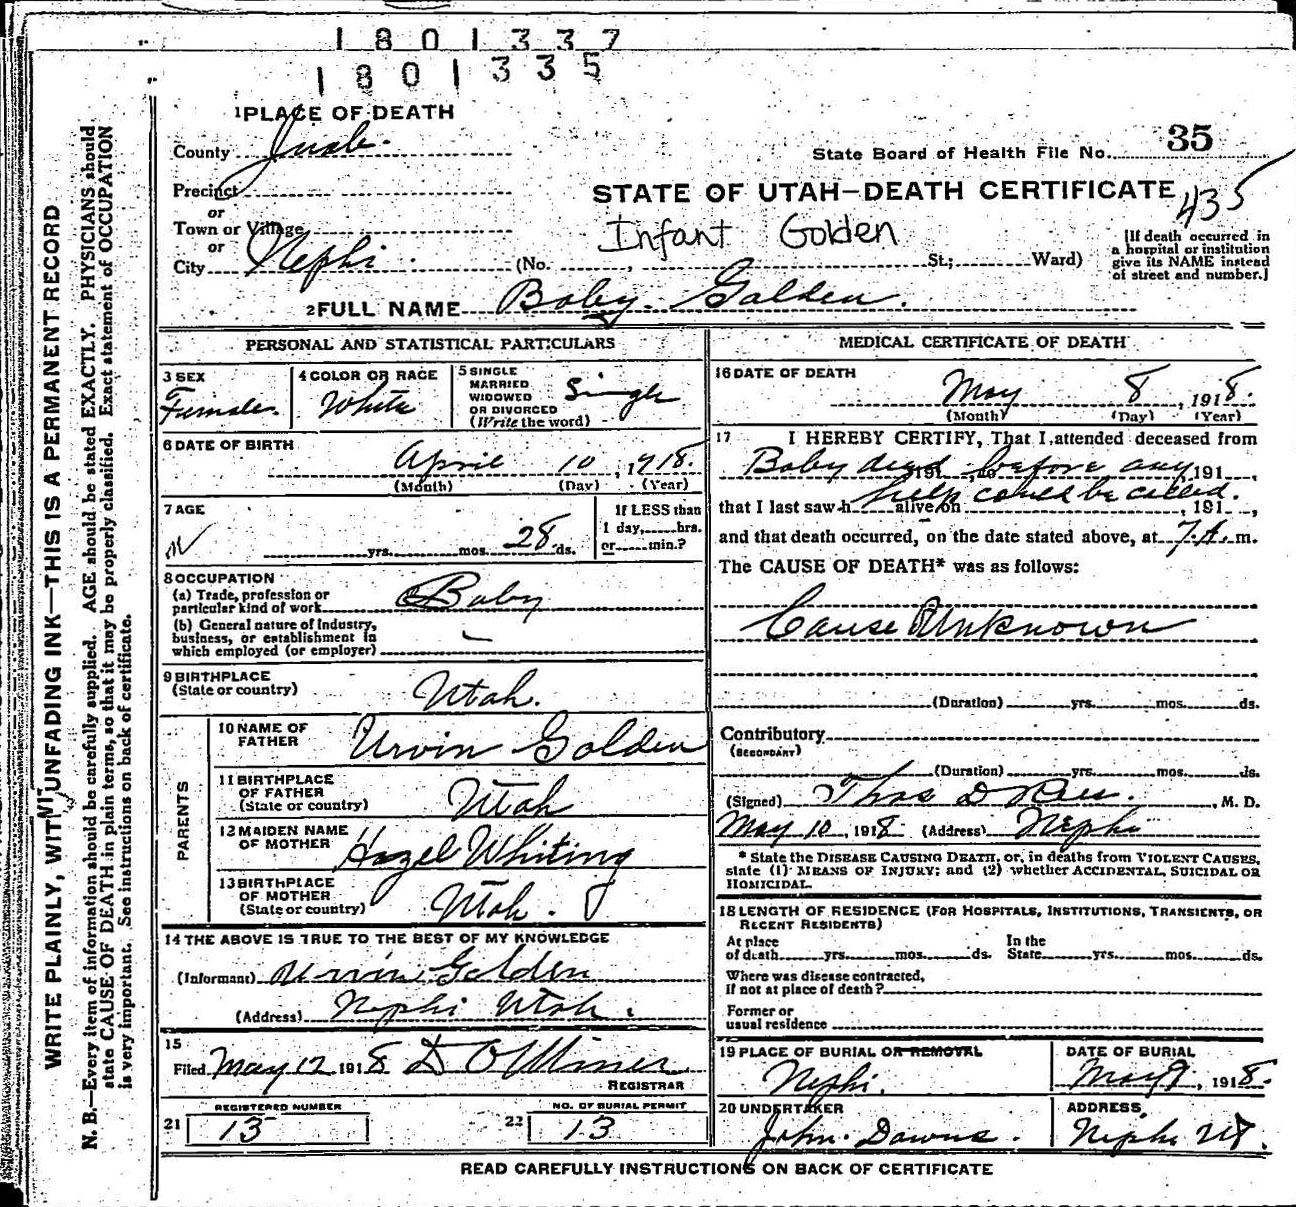 1801337
1801335
1 PLACE OF DEATH
County Juab.
State Board of Health File No. 35
Precinct
or
STATE OF UTAH—DEATH CERTIFICATE
435
Town or Village
or
Infant Golden
City Nephi. (No. , St.; Ward)
[If death occurred in
a hospital or institution
give its NAME instead
of street and number.]
2 FULL NAME Baby Golden.
PERSONAL AND STATISTICAL PARTICULARS
3 SEX
Female
4 COLOR OR RACE
White
5 SINGLE
MARRIED
WIDOWED
OR DIVORCED
(Write the word)
Single
6 DATE OF BIRTH
April 10, 1918.
(Month) (Day) (Year)
7 AGE
yrs. mos. 28 ds.
If LESS than
1 day, hrs.
or min.?
8 OCCUPATION
(a) Trade, profession or
particular kind of work Baby
(b) General nature of Industry,
business, or establishment in
which employed (or employer)
9 BIRTHPLACE
(State or country)
Utah.
PARENTS
10 NAME OF
FATHER
Urvin Golden
11 BIRTHPLACE
OF FATHER
(State or country)
Utah
12 MAIDEN NAME
OF MOTHER
Hazel Whiting
13 BIRTHPLACE
OF MOTHER
(State or country)
Utah.
14 THE ABOVE IS TRUE TO THE BEST OF MY KNOWLEDGE
(Informant) Urvin Golden
(Address) Nephi Utah.
15
Filed May 12 1918 D O Miner
REGISTRAR
21 REGISTERED NUMBER
13
22 NO. OF BURIAL PERMIT
13
MEDICAL CERTIFICATE OF DEATH
16 DATE OF DEATH
May 8, 1918.
(Month) (Day) (Year)
17 I HEREBY CERTIFY, That I attended deceased from
Baby died 191 , to before any 191 ,
help could be called.
that I last saw h alive on , 191 ,
and that death occurred, on the date stated above, at 7 A. m.
The CAUSE OF DEATH* was as follows:
Cause Unknown
(Duration) yrs. mos. ds.
Contributory
(SECONDARY)
(Duration) yrs. mos. ds.
(Signed) Thos D Rees. , M. D.
May 10, 1918 (Address) Nephi
* State the DISEASE CAUSING DEATH, or, in deaths from VIOLENT CAUSES,
state (1) MEANS OF INJURY; and (2) whether ACCIDENTAL, SUICIDAL OR
HOMICIDAL.
18 LENGTH OF RESIDENCE (FOR HOSPITALS, INSTITUTIONS, TRANSIENTS, OR
RECENT RESIDENTS)
At place
of death yrs. mos. ds.
In the
State yrs. mos. ds.
Where was disease contracted,
if not at place of death?
Former or
usual residence
19 PLACE OF BURIAL OR REMOVAL
Nephi.
DATE OF BURIAL
May 9, 1918.
20 UNDERTAKER
John Downs.
ADDRESS
Nephi Ut.
READ CAREFULLY INSTRUCTIONS ON BACK OF CERTIFICATE
WRITE PLAINLY, WITH UNFADING INK—THIS IS A PERMANENT RECORD
N. B.—Every item of information should be carefully supplied. AGE should be stated EXACTLY. PHYSICIANS should
state CAUSE OF DEATH in plain terms, so that it may be properly classified. Exact statement of OCCUPATION
is very important. See instructions on back of certificate.